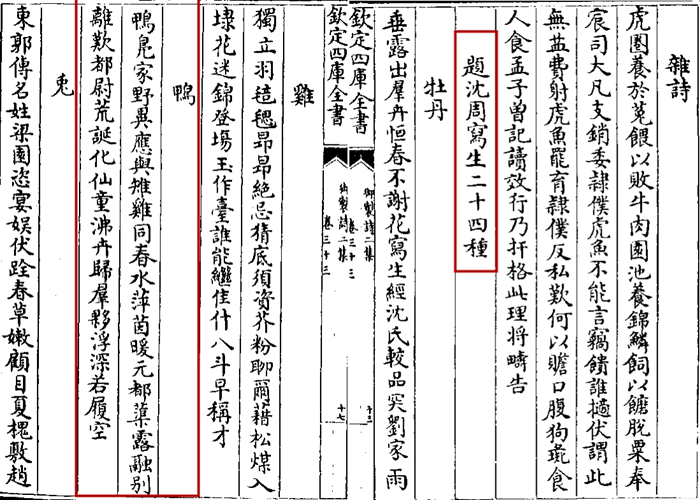 雜詩
虎圈養於菟餵以敗牛肉園池養錦鱗飼以脫粟奉
宸司大凡支銷委隸僕虎魚不能言竊饋誰擿伏謂此
無益費射虎魚罷育隸僕反私歎何以贍口腹狗彘食
人食孟子曾記讀效行乃扞格此理將疇告
題沈周寫生二十四種
牡丹
垂露出羣丹恒春不謝花寫生經沈氏較品突劉家雨
欽定四庫全書
御製詩二集
卷三十三
十三
欽定四庫全書
御製詩二集
卷三十三
十七
雞
獨立羽毰毸昂昂絶忌猜底須資芥粉聊爾藉松煤入
埭花迷錦登塲玉作臺誰能繼佳什八斗早稱才
鴨
鴨鳧家野異應與雉雞同春水萍茵暖元都蘂露融別
離歎都尉荒誕化仙童沸丹歸羣夥浮深若履空
兎
東郭傳名姓梁園恣宴娱伏跧春草嫩顧目夏槐敷趙